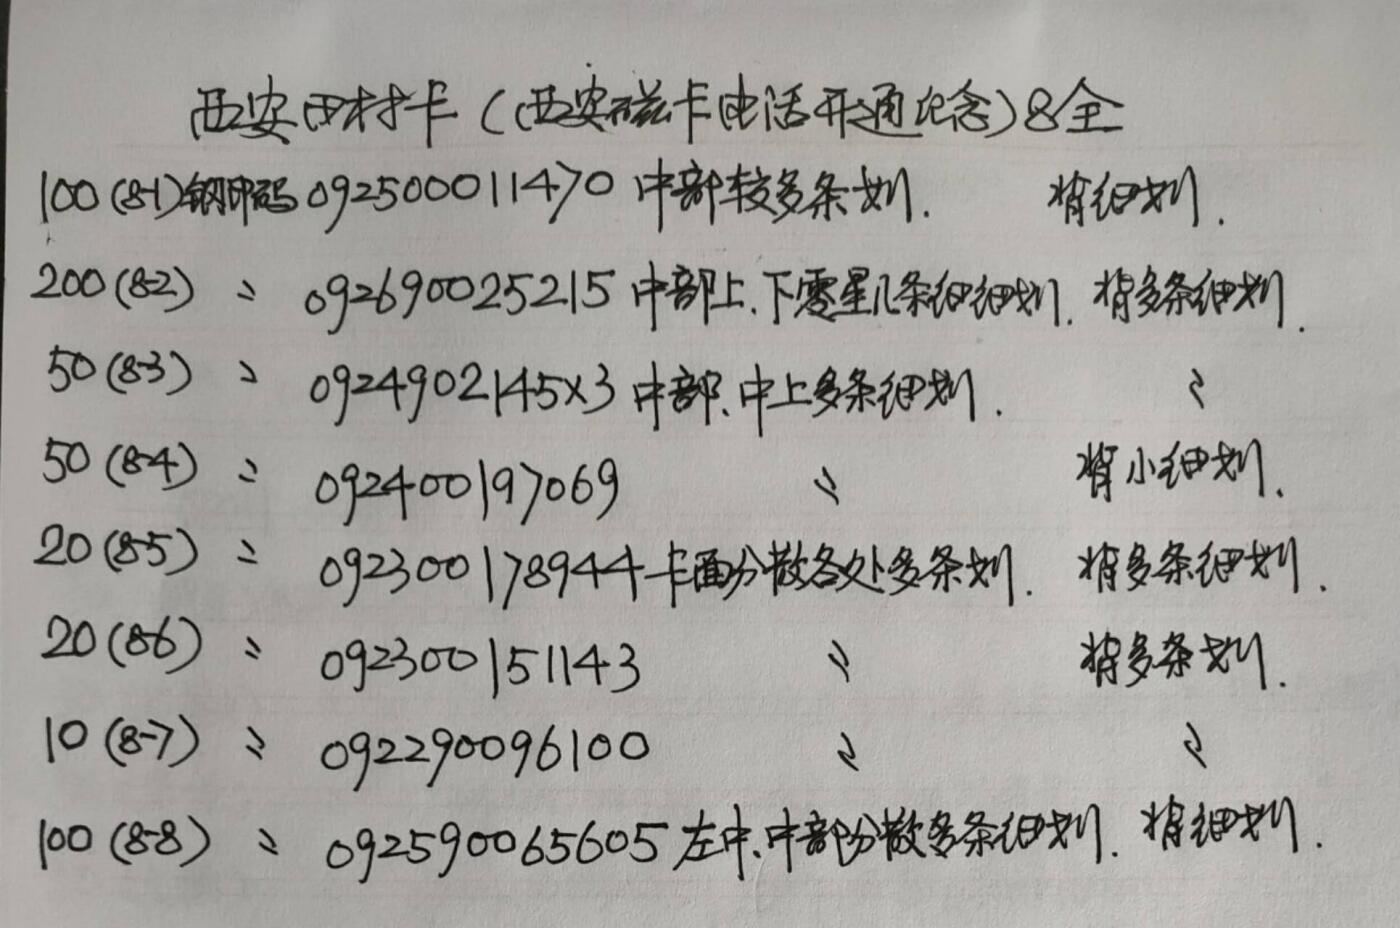 西安田村卡(西安磁卡电话开通纪念)8全
100(8-1)钢印码 092500011470 中部较多条划. 背细划.
200(8-2) 〃 092690025215 中部上、下零星几条细细划. 背多条细划.
50(8-3) 〃 0924902145×3 中部、中上多条细划. 〃
50(8-4) 〃 092400197069 〃 背小细划.
20(8-5) 〃 092300178944 卡面分散各处多条划. 背多条细划.
20(8-6) 〃 092300151143 〃 背多条划.
10(8-7) 〃 092290096100 〃 〃
100(8-8) 〃 092590065605 左中、中部分散多条细划. 背细划.